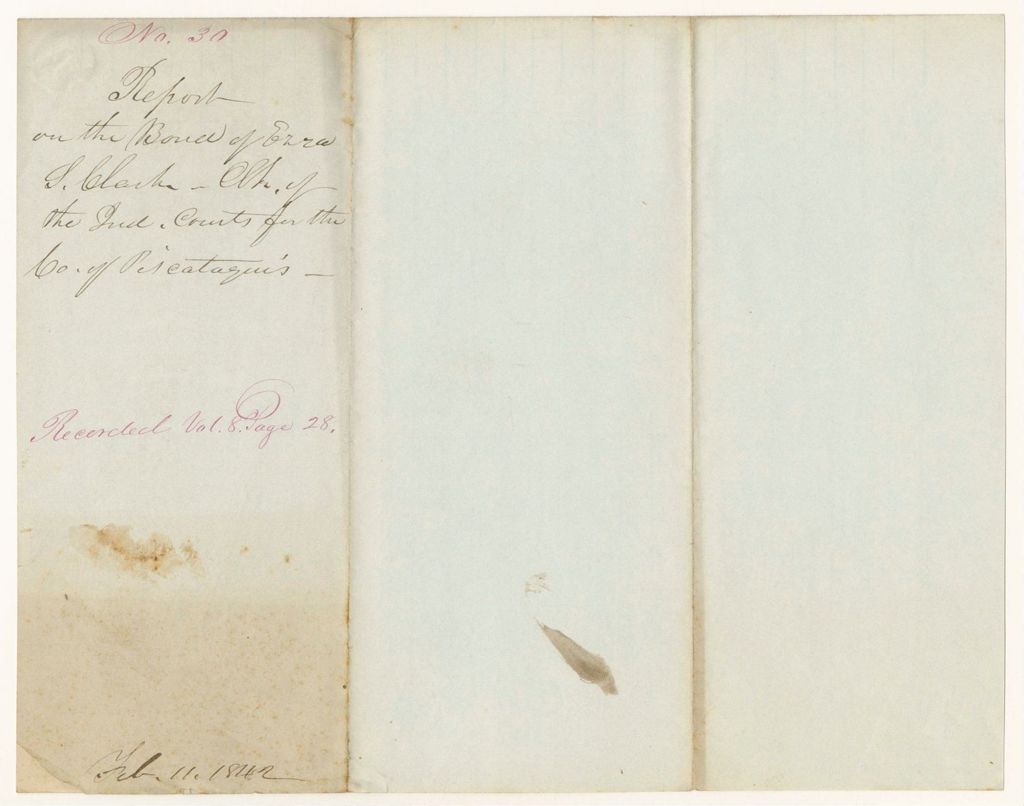 No. 30
Report
on the Bond of Ezra
S. Clark – Clk. of
the Jud. Courts for the
Co. of Piscataquis –
Recorded Vol. 8. Page 28.
Feb. 11. 1842